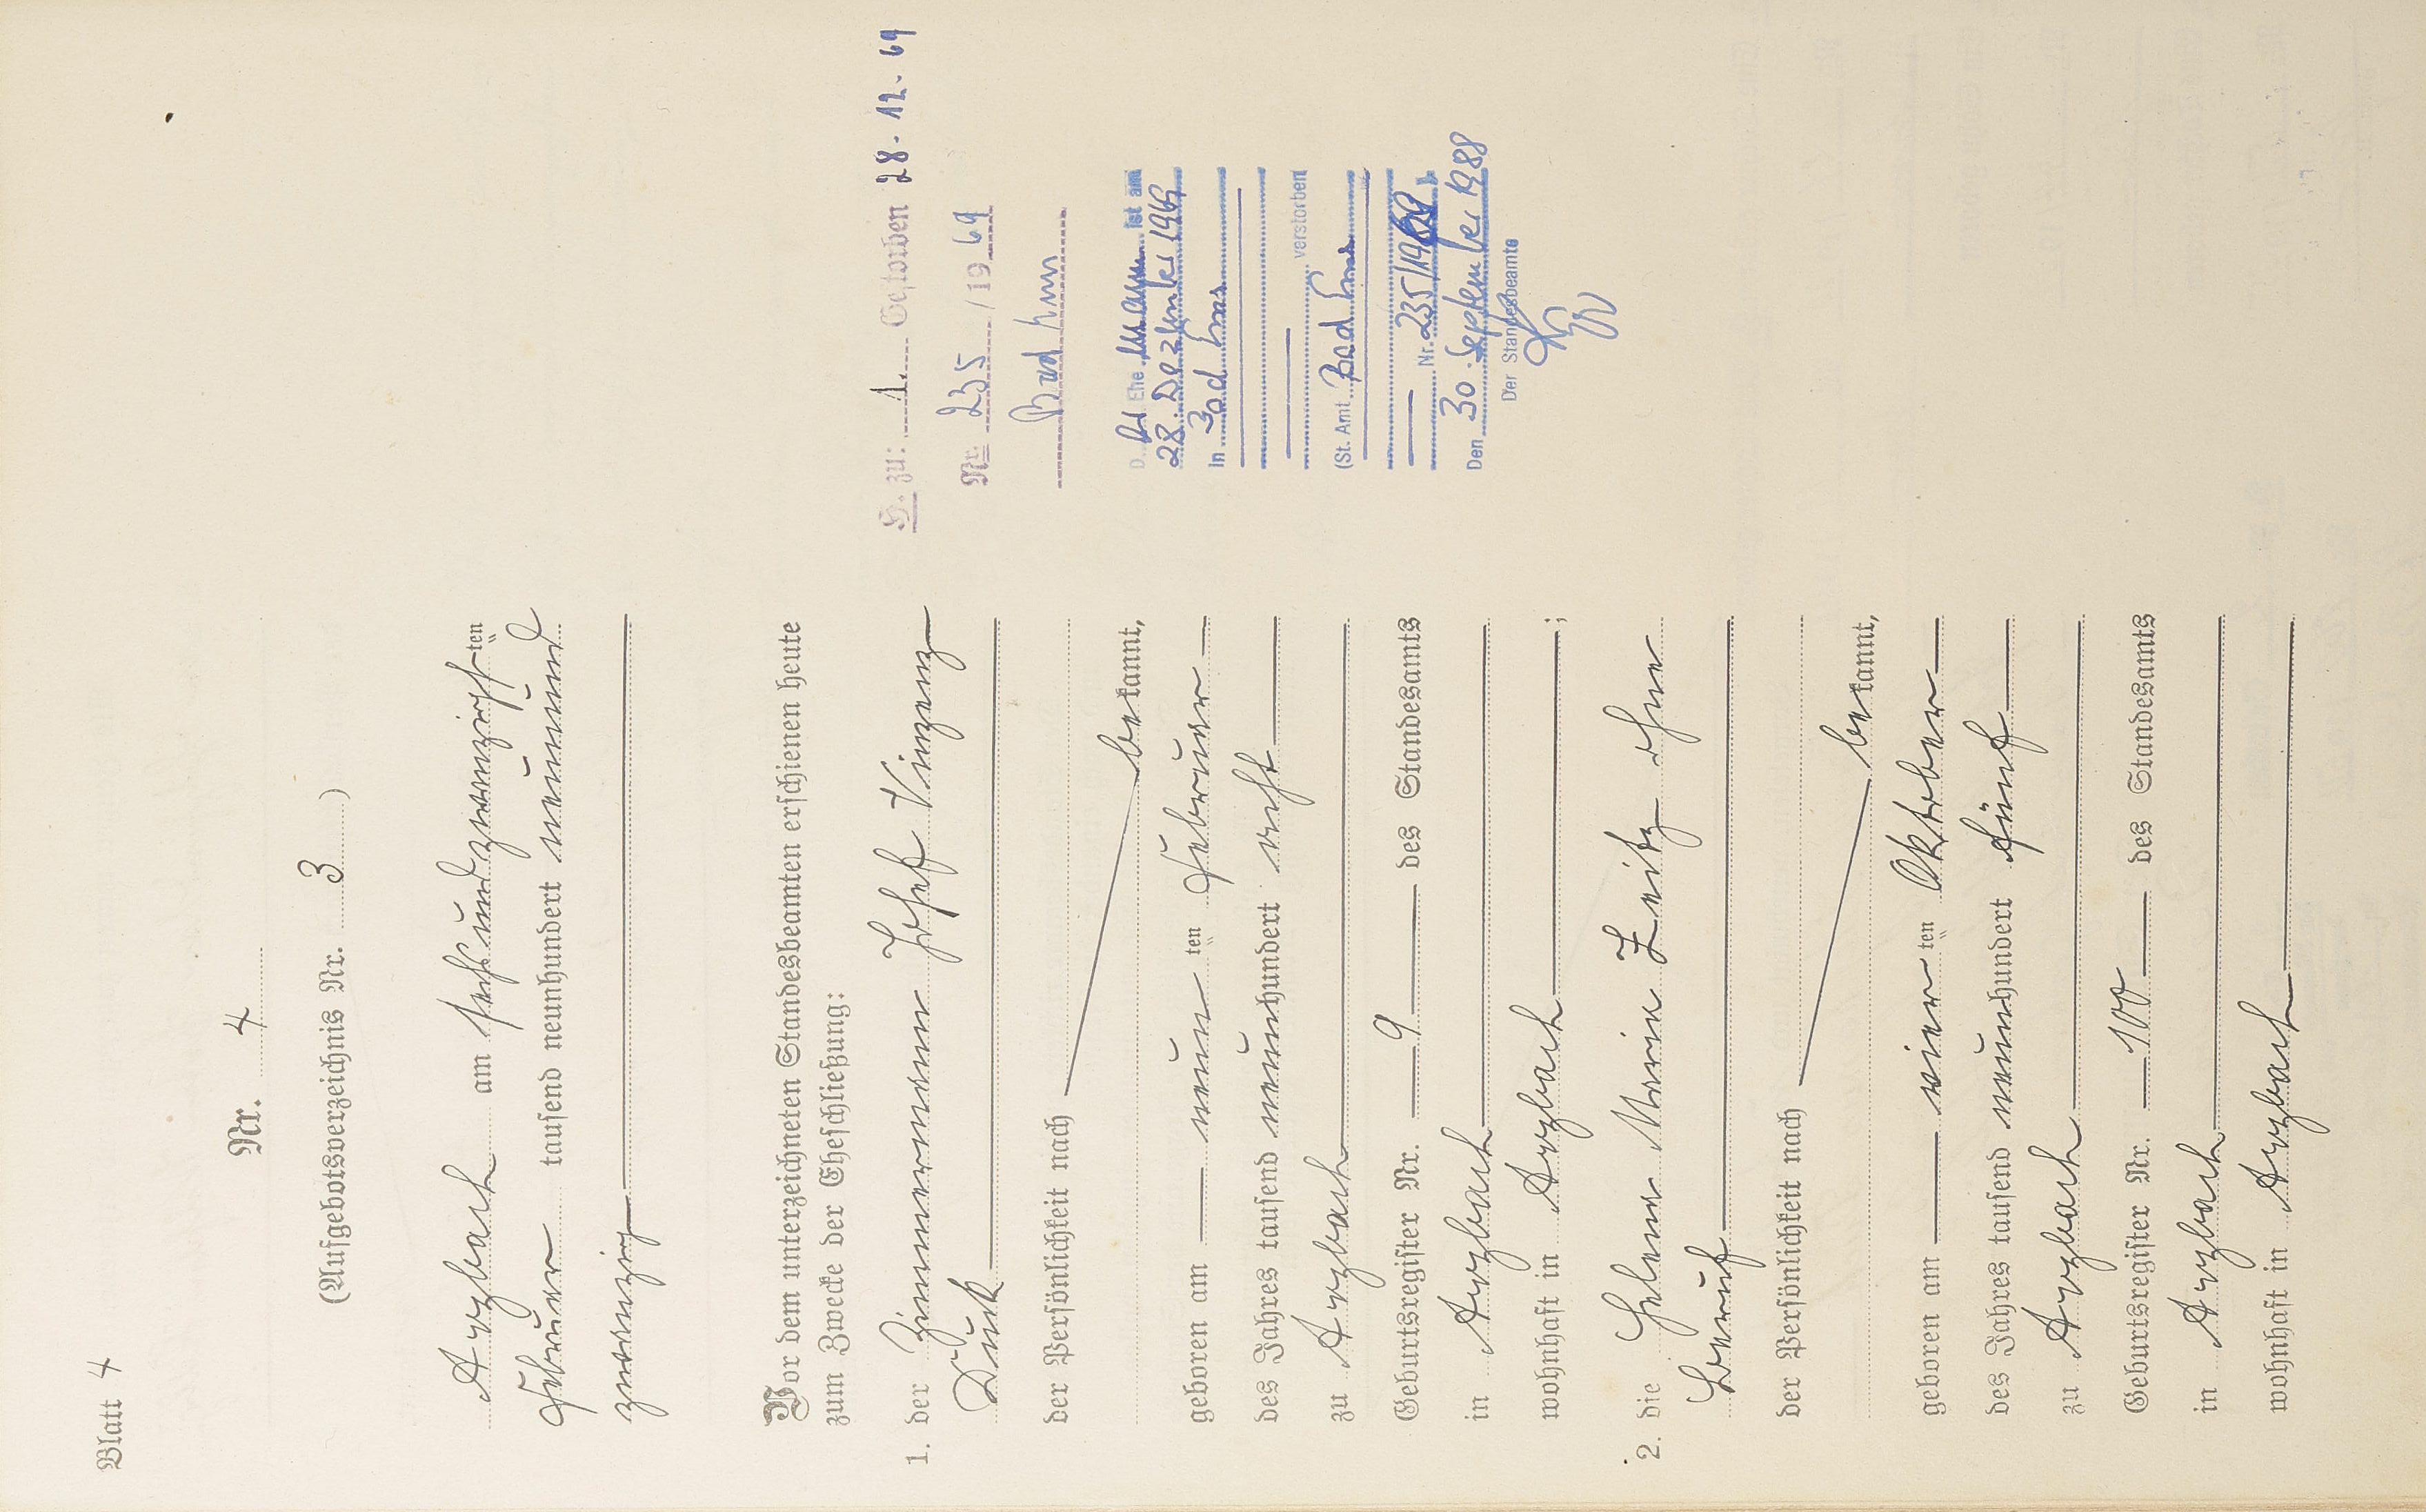 Blatt 4
Nr. 4
(Aufgebotsverzeichnis Nr. 3)
Arzbach am sechsundzwanzigsten
Februar tausend neunhundert neunund
zwanzig
Vor dem unterzeichneten Standesbeamten erschienen heute
zum Zwecke der Eheschließung:
1. der Zimmermann Josef Vinzenz
Duck
der Persönlichkeit nach
bekannt,
geboren am neunten Februar
des Jahres tausend neunhundert acht
zu Arzbach
Geburtsregister Nr. 9 des Standesamts
in Arzbach
wohnhaft in Arzbach ;
2. die Helena Maria Zeitz ohne
Beruf
der Persönlichkeit nach
bekannt,
geboren am vierten Oktober
des Jahres tausend neunhundert fünf
zu Arzbach
Geburtsregister Nr. 100 des Standesamts
in Arzbach
wohnhaft in Arzbach
H. zu: 1. Gestorben 28.12.69
Nr. 235 /1969
Bad Ems
D. Ehemann ist am
28. Dezember 1969
in Bad Ems
verstorben
(St. Amt Bad Ems
Nr. 235/1969)
Den 30. September 1988
Der Standesbeamte